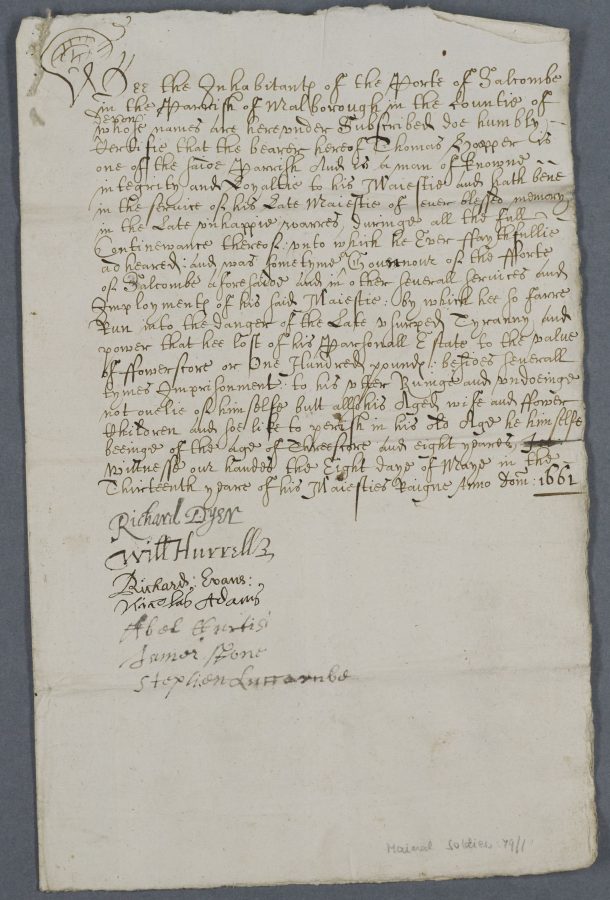 Wee the Inhabitants of the Porte of Salcombe
in the Parrish of Malborough in the Countie of
Devon
whose names are hereunder Subscribed doe humbly
Certifie that the bearer hereof Thomas Hopper is
one off the saide Parrish And is a man of knowne
integrity and Loyaltie to his Maiestie and hath bene
in the service of his Late Maiestie of ever blessed memory
in the Late unhappie warres duringe all the full
Continewance thereof: unto which he Ever ffaythfullie
adheared: and was sometyme Governour of the fforte
of Salcombe aforesaide and in other severall services and
Imployments of his said Maiestie: by which hee so farre
Run into the danger of the Late usurped Tyranny and
power that hee lost of his Parsonall Estate to the value
of ffowerscore or One Hundred pounds: besides severall
tymes Imprisonment: to his utter Ruinge and undoeinge
not onelie of himselfe butt allso his Aged wife and ffower
Children and soe like to perish in his old Age he himselfe
beeinge of the age of Threescore and eight yeares
Wittnesse our handes the Eight daye of Maye in the
Thirteenth yeare of his Maiesties Raigne Anno dom: 1661
Richard Dyer
Will Hurrell
Richard: Evans:
Nicolas Adams
Abel Curtis
James Stone
Stephen Luccombe
Maimed Soldiers 79/1